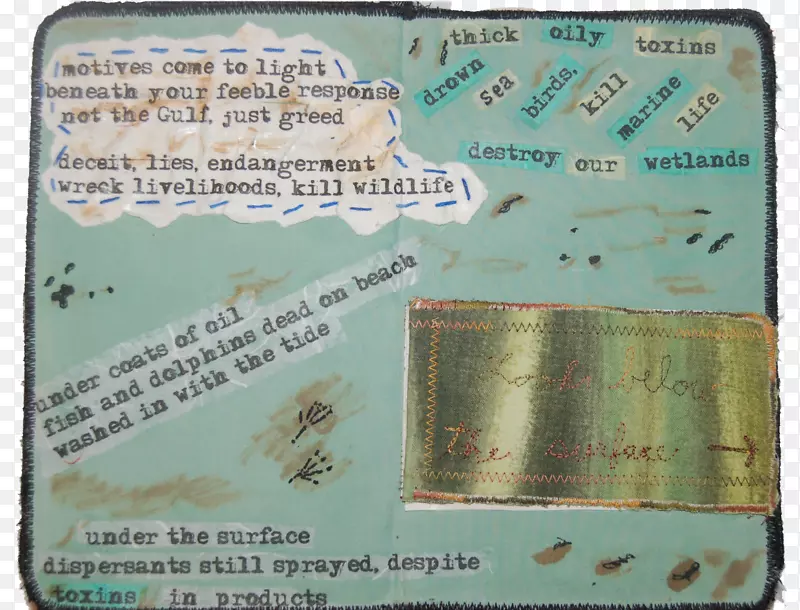 motives come to light
beneath your feeble response
not the Gulf, just greed
deceit, lies, endangerment
wreck livelihoods, kill wildlife
thick oily toxins
drown sea birds, kill marine life
destroy our wetlands
under coats of oil
fish and dolphins dead on beach
washed in with the tide
Looks below
The surface
under the surface
dispersants still sprayed, despite
toxins in products